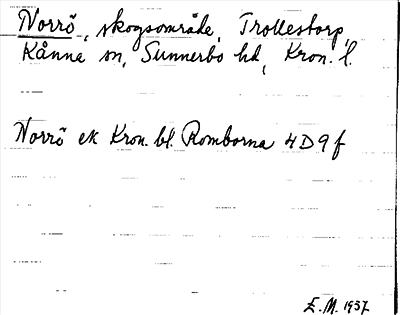 Norrö, skogsområde, Trollestorp,
Kånna sn, Sunnerbo hd, Kron. l.
Norrö ek Kron. bl. Romborna 4D9f
E.M. 1937